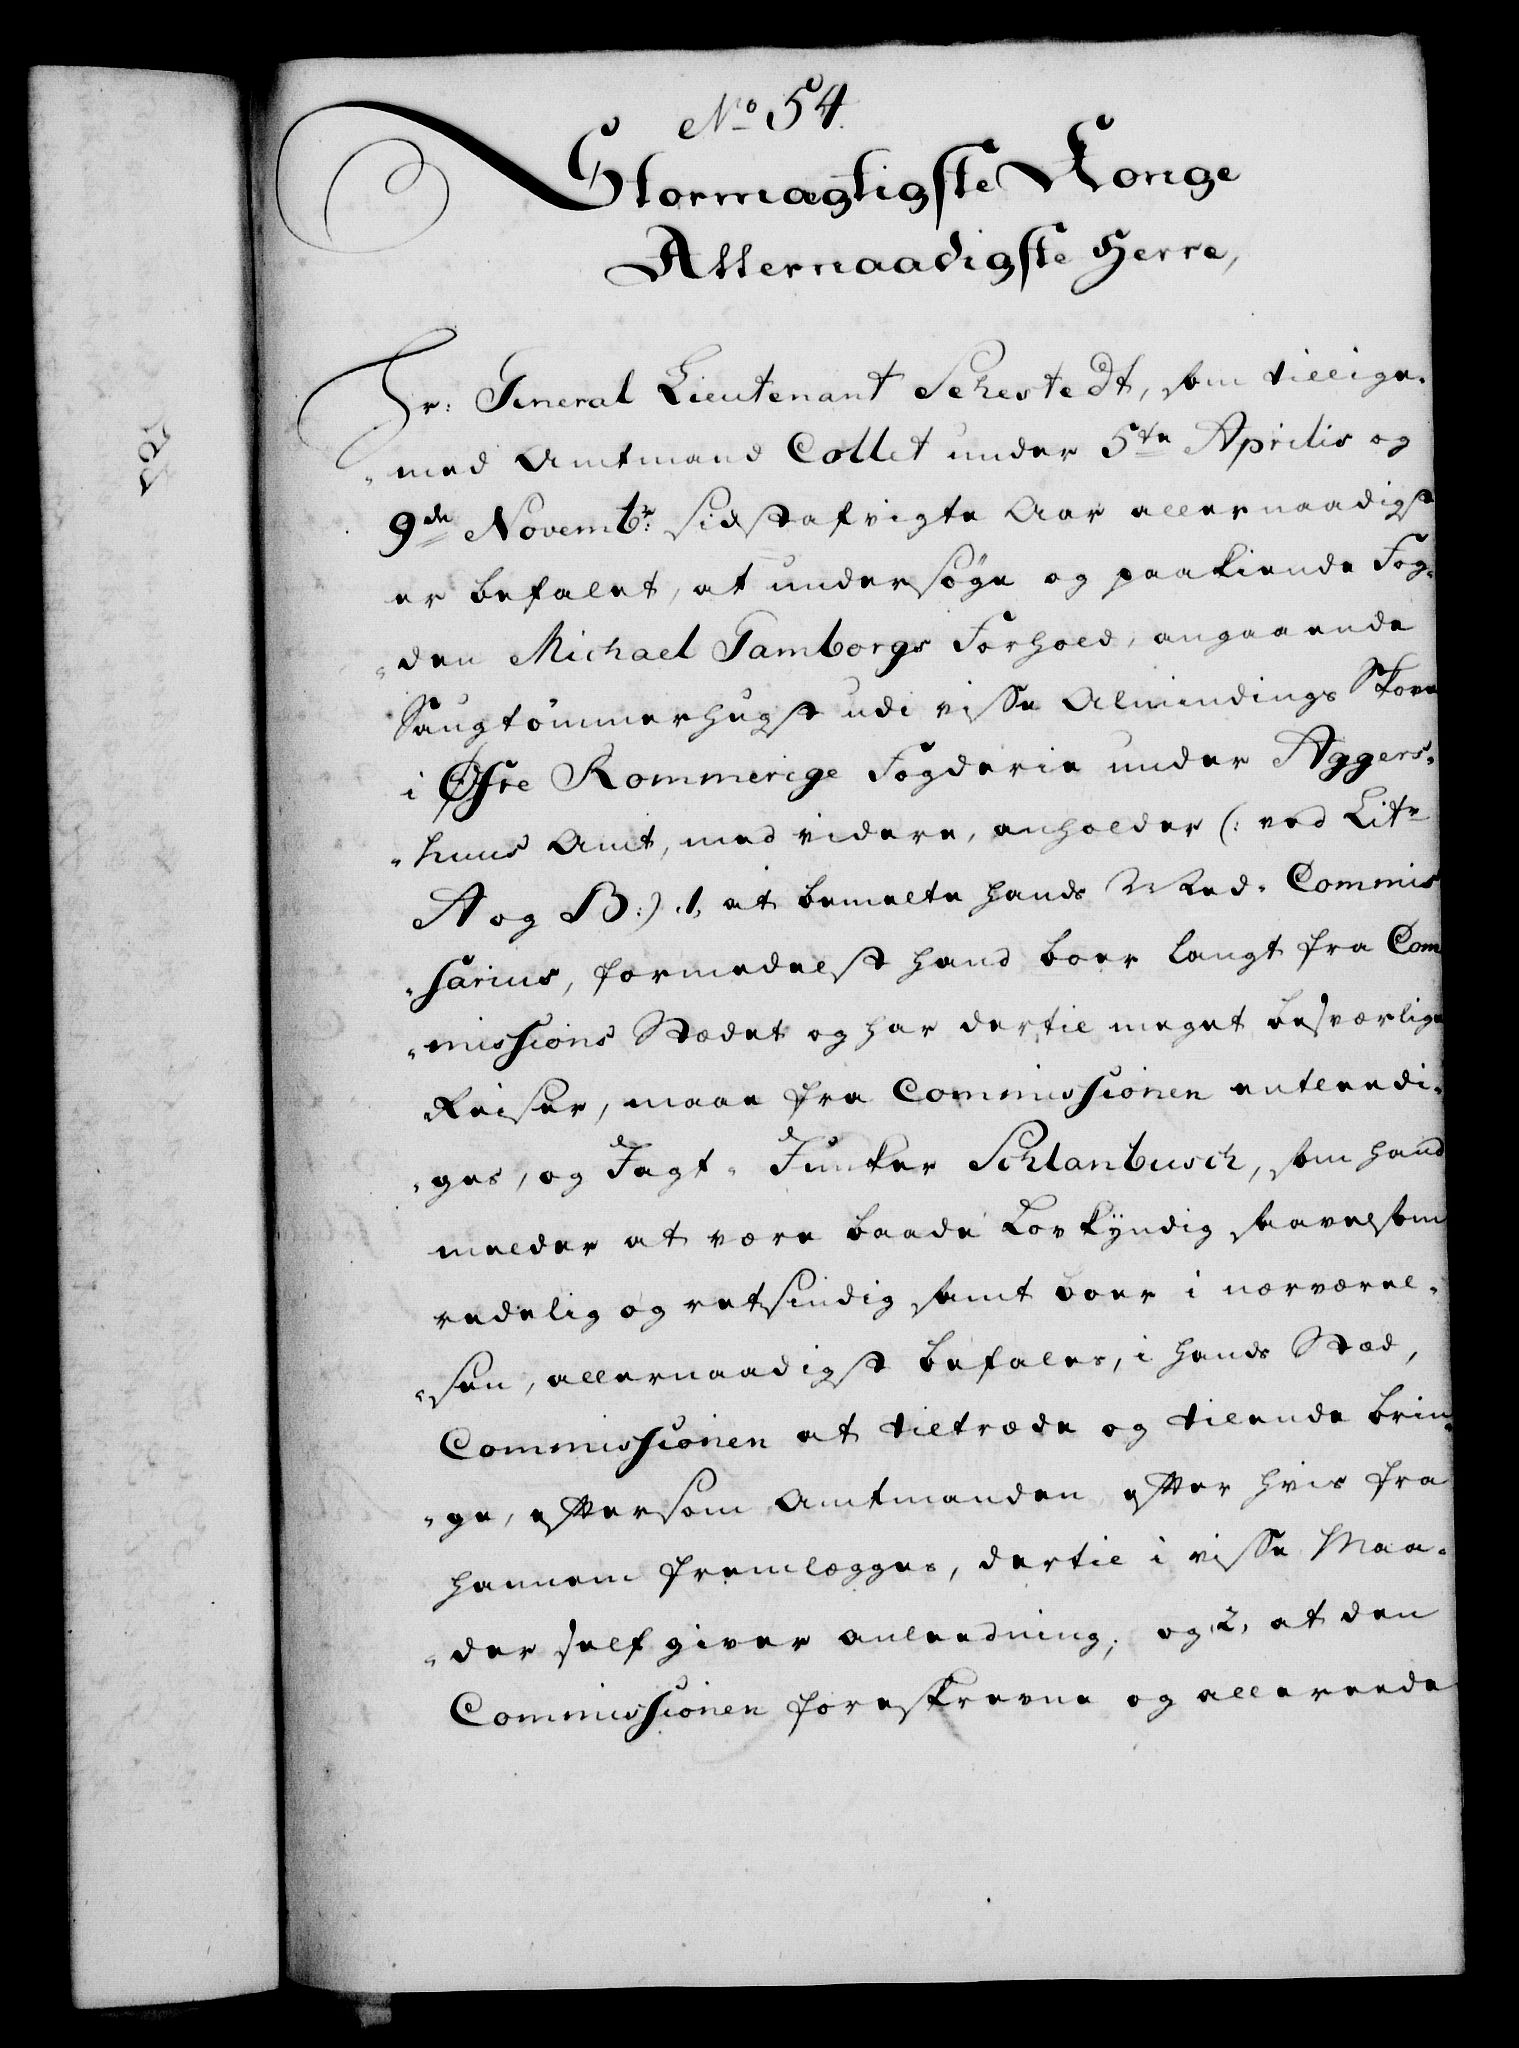 No 54.
Stormægtigste Konge
Allernaadigste Herre,
Hr: General Lieutenant Sehestedt, som tillige-
"med Amtmand Collet under 5te Aprilis og
9de Novembr: sidstafvigte Aar allernaadigst
er befalet, at undersøge og paakiende Fog-
"den Michael Tamborgs Forhold, angaaende
Saugtømmerhugst udi visse Almindings Skove
i Øfre Rommerige Fogderie under Aggers-
"huus Amt, med videre, anholder (: ved Litr
A og B:) .1, at bemelte hands Med- Commis
"sarius, formedelst hand boer langt fra Com
"missions Stædet og har dertil meget besværlige
Reiser, maae fra Commissionen entleedi-
"ges, og Jagt- Junker Schlanbusch, som hand
melder at være baade Lovkyndig saavelsom
redelig og retsindig samt boer i nærværel-
"sen, allernaadigst befales, i hands Stæd,
Commissionen at tiltræde og tilende brin-
"ge, eftersom Amtmanden efter hvis fra
hannem fremlægges, dertil i visse Maa-
"der self giver anleedning; og 2, at den
Commissionen foreskrevne og allereede
525